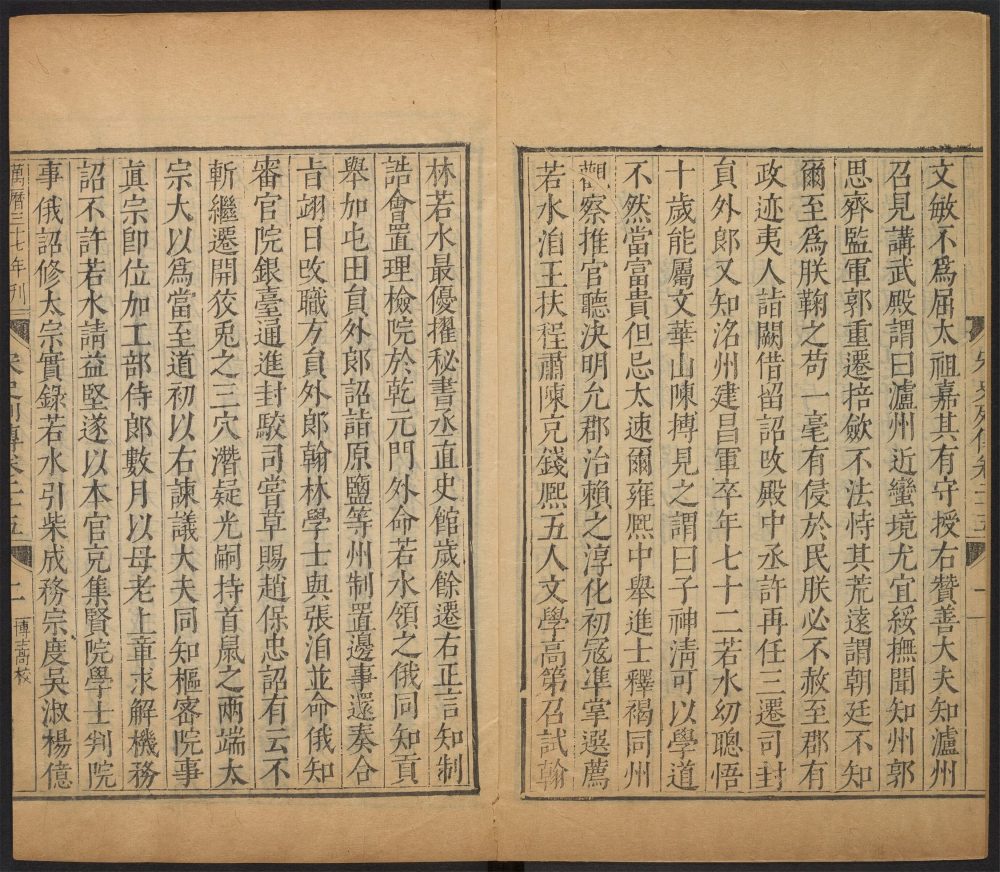 文敏不爲屈太祖嘉其有守授右贊善大夫知瀘州
召見講武殿謂曰瀘州近蠻境尤宜綏撫聞知州郭
思齊監軍郭重遷掊斂不法恃其荒遠謂朝廷不知
爾至爲朕鞠之苟一毫有侵於民朕必不赦至郡有
政迹夷人詣闕借留詔改殿中丞許再任三遷司封
員外郎又知洺州建昌軍卒年七十二若水幼聰悟
十歲能屬文華山陳摶見之謂曰子神淸可以學道
不然當富貴但忌太速爾雍熙中舉進士釋褐同州
觀察推官聽決明允郡治賴之淳化初寇準掌選薦
若水洎王扶程肅陳充錢熙五人文學高第召試翰
林若水最優擢秘書丞直史館歲餘遷右正言知制
誥會置理檢院於乾元門外命若水領之俄同知貢
舉加屯田員外郎詔詣原鹽等州制置邊事還奏合
旨翊日改職方員外郎翰林學士與張洎並命俄知
審官院銀臺通進封駮司嘗草賜趙保忠詔有云不
斬繼遷開狡兎之三穴潛疑光嗣持首鼠之兩端太
宗大以爲當至道初以右諫議大夫同知樞密院事
眞宗卽位加工部侍郎數月以母老上章求解機務
詔不許若水請益堅遂以本官充集賢院學士判院
事俄詔修太宗實錄若水引柴成務宗度吳淑楊億
萬曆二十七年刊
宋史列傳卷二十五
二